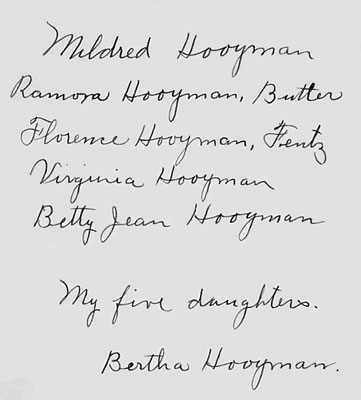 Mildred Hooyman
Ramona Hooyman, Butter
Florence Hooyman, Fentz
Virginia Hooyman
Betty Jean Hooyman
My five daughters.
Bertha Hooyman.